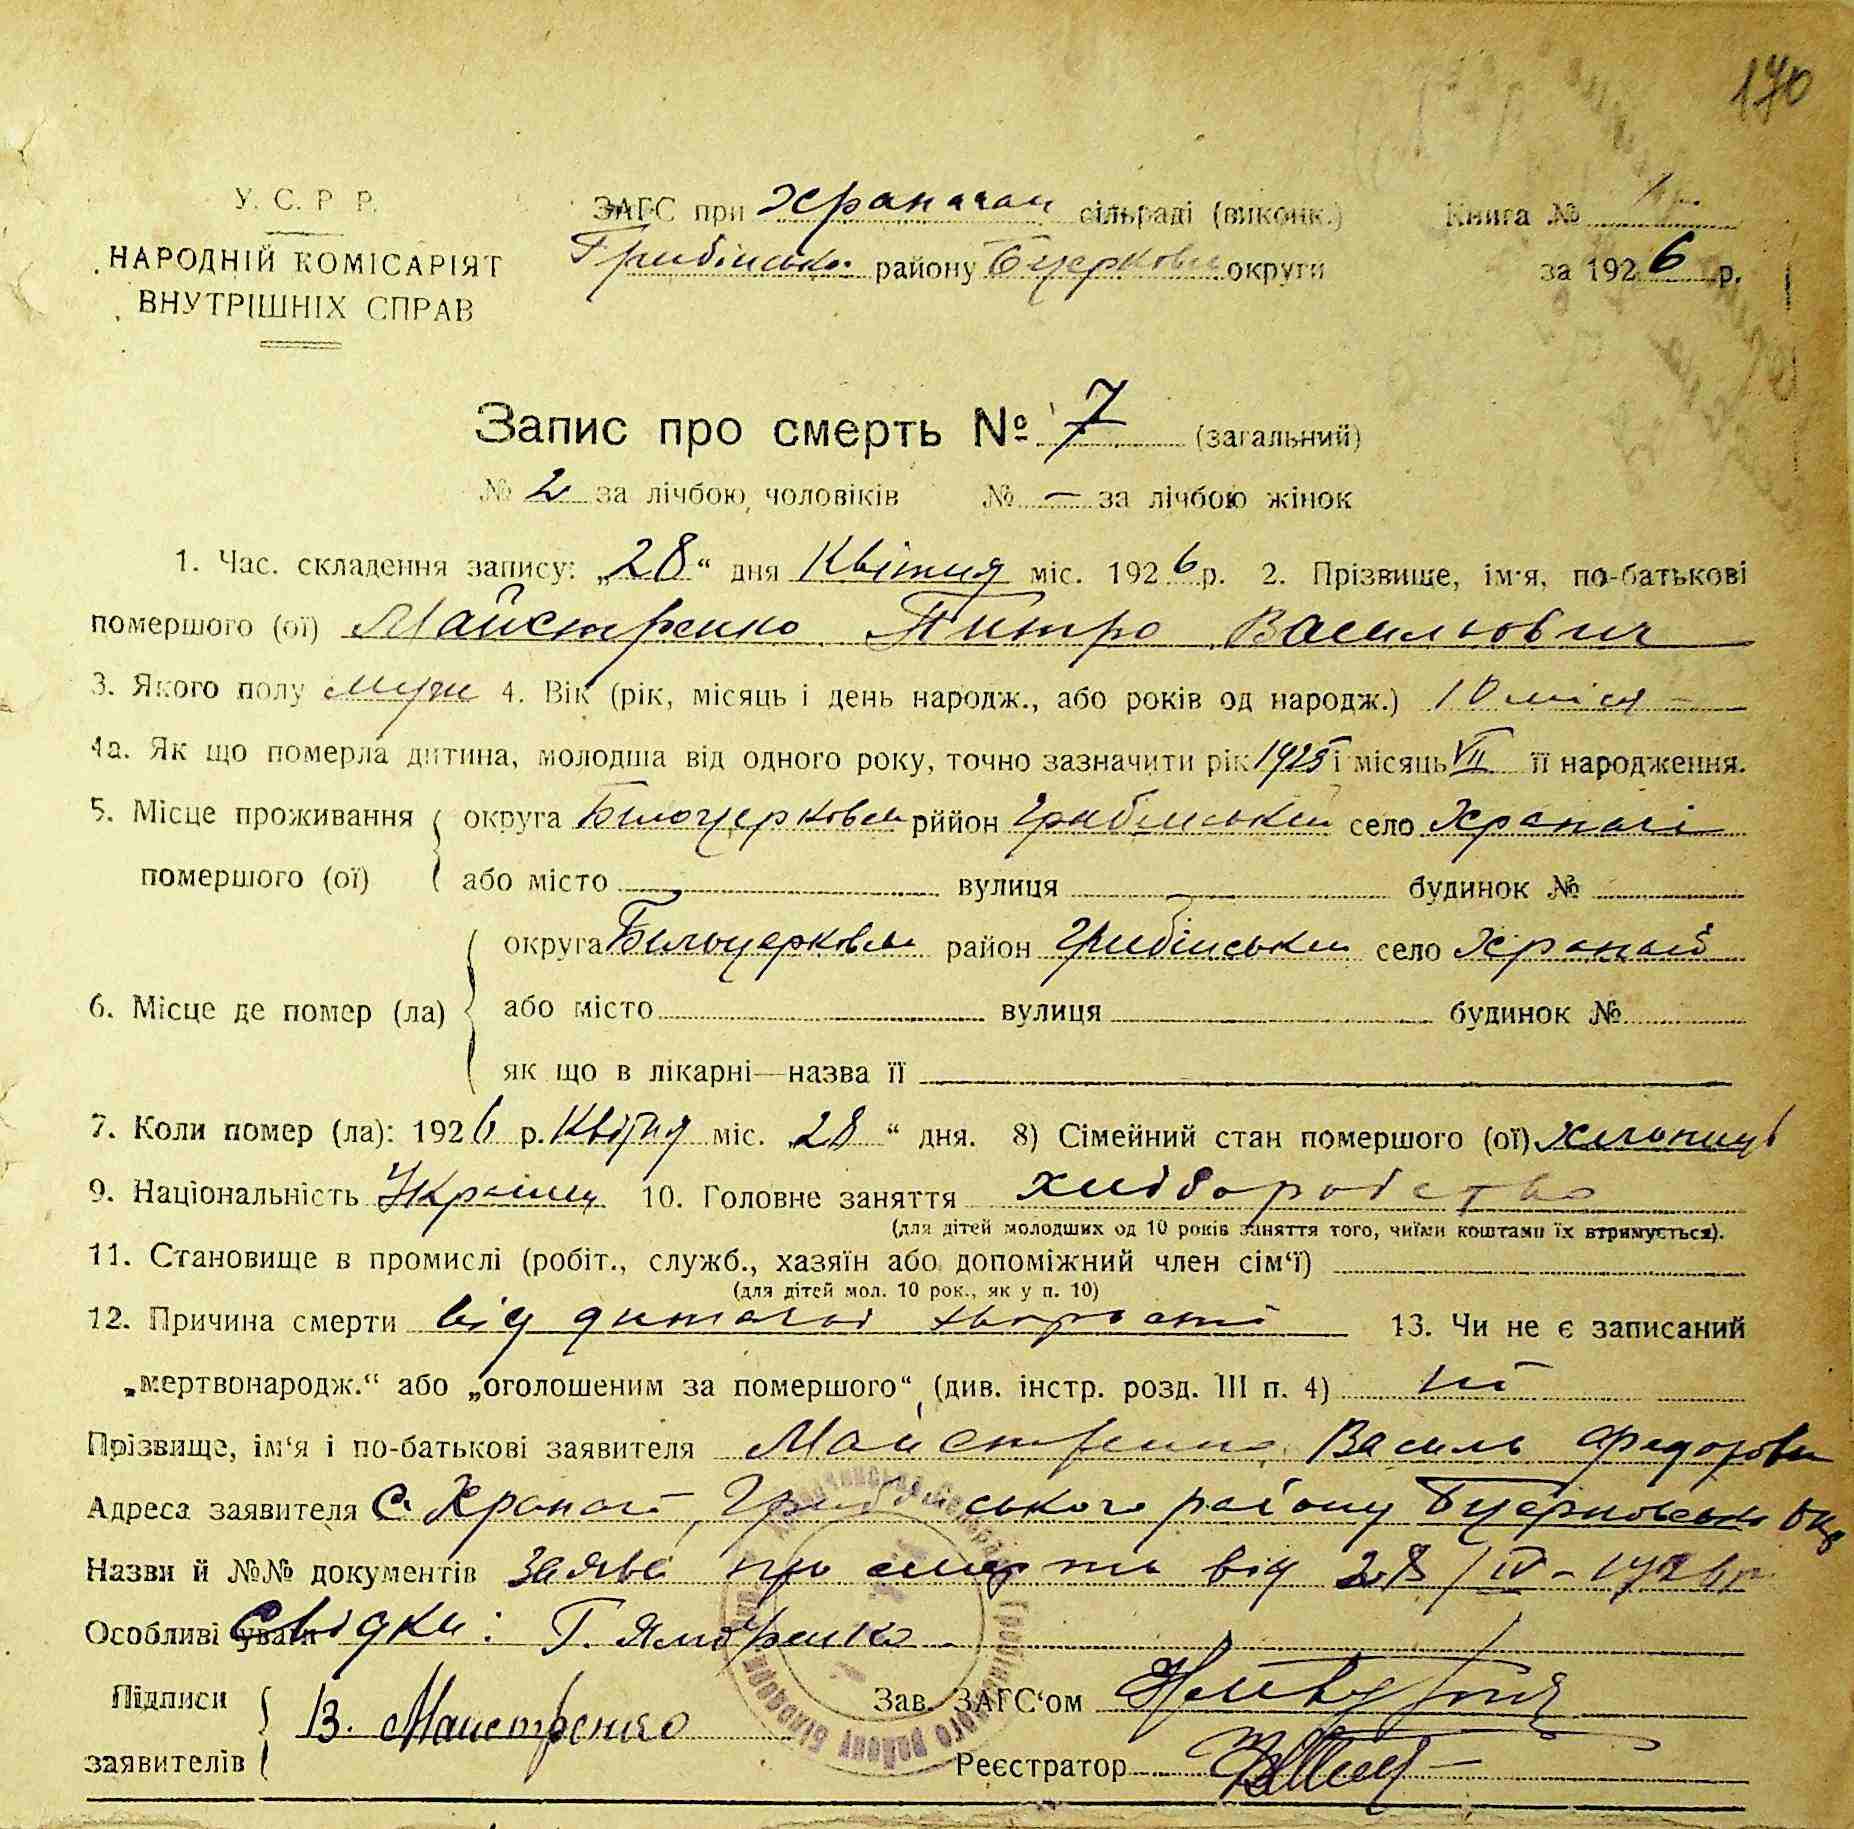 170
У. С. Р. Р.
НАРОДНІЙ КОМІСАРІЯТ
ВНУТРІШНІХ СПРАВ
ЗАГС при Храпачан сільраді (виконк.)
району Бцеркови округи
Книга №
за 1926 р.
Запис про смерть № 7 (загальний)
№ 2 за лічбою чоловіків № — за лічбою жінок
1. Час. складення запису: „28“ дня Квітня міс. 1926 р. 2. Прізвище, ім'я, по-батькові
помершого (ої) Майстренко Питро Васильович
3. Якого полу муж 4. Вік (рік, місяць і день народж., або років од народж.) 10 міся -
4а. Як що померла дитина, молодша від одного року, точно зазначити рік 1925 і місяць VII її народження.
5. Місце проживання округа Білоцерковськ рййон Грибінський село Храпачі
помершого (ої) або місто вулиця будинок №
6. Місце де помер (ла) округа Білоцерковськ район Грибінський село Храпачі
або місто вулиця будинок №
як що в лікарні—назва її
7. Коли помер (ла): 1926 р. Квітня міс. 28 “ дня. 8) Сімейний стан помершого (ої) хлопиць
9. Національність Українц 10. Головне заняття хліборобство
(для дітей молодших од 10 років заняття того, чиїми коштами їх втримується).
11. Становище в промислі (робіт., служб., хазяїн або допоміжний член сім‘ї)
(для дітей мол. 10 рок., як у п. 10)
12. Причина смерти від дитячої хворости 13. Чи не є записаний
„мертвонародж.“ або „оголошеним за помершого“ (див. інстр. розд. III п. 4) ні
Прізвище, ім‘я і по-батькові заявителя Майстренко Василь Федорови
Адреса заявителя С. Храпачі, Грибінського району Бцерковсько Окр
Назви й №№ документів Заява про смерть від 28/IV - 1926 р.
Особливі уваги Свідки: Г.
Підписи
заявителів
В. Майстренко
Зав. ЗАГС‘ом
Реєстратор